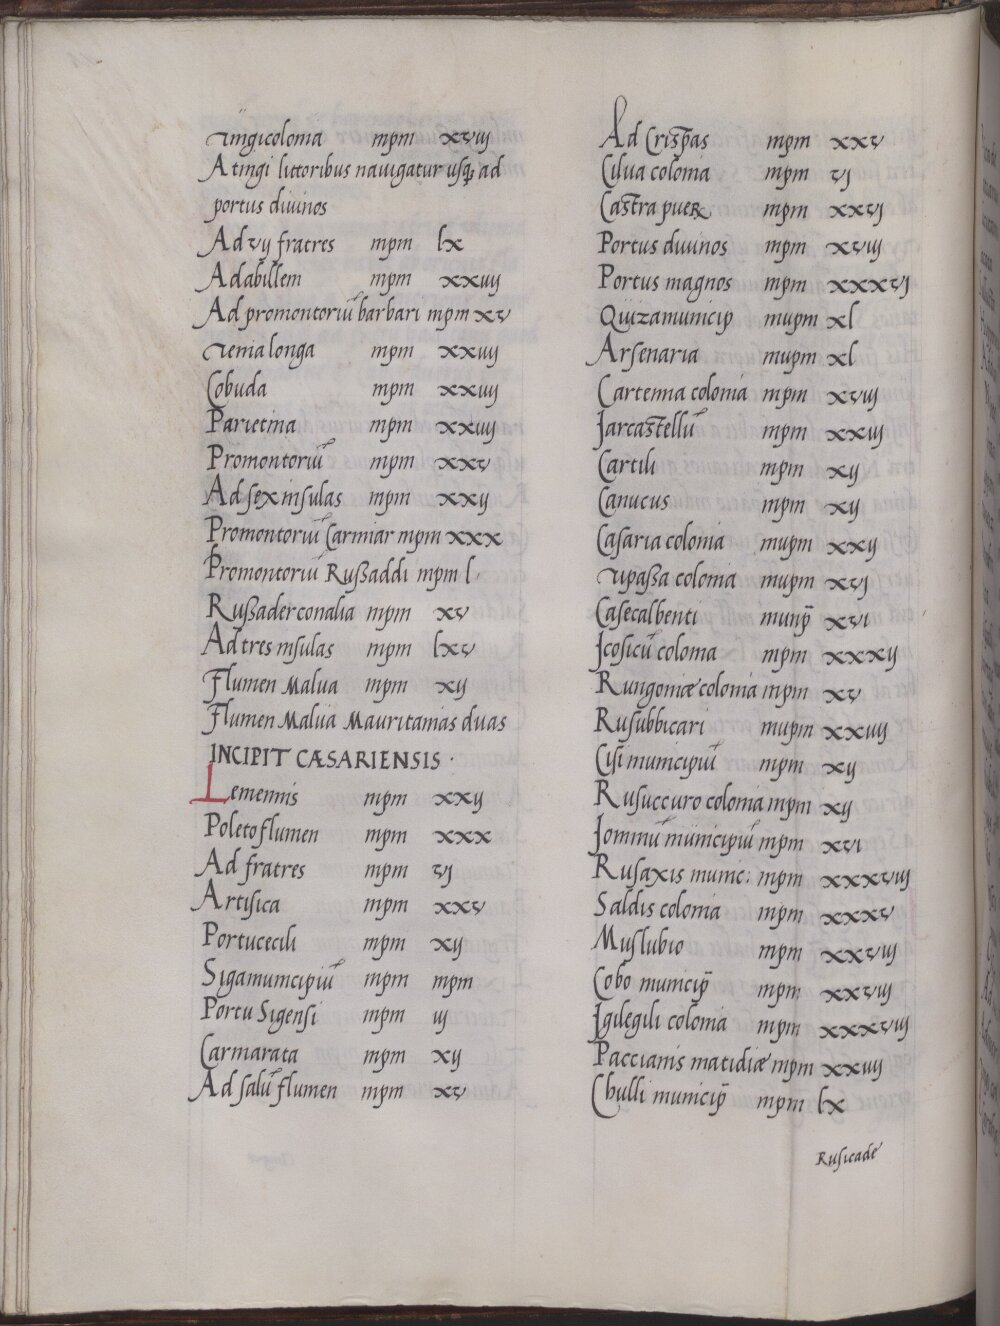 Tingicolonia mpm xvij
Atingi littoribus nauigatur usq; ad
portus diuinos
Ad vij fratres mpm lx
Adabillem mpm xxiiij
Ad promontoriũ barbari mpm xv
Tenialonga mpm xxiiij
Cobuda mpm xxiiij
Parietina mpm xxiiij
Promontoriũ mpm xxv
Ad sex insulas mpm xxij
Promontoriũ Carmiar mpm xxx
Promontoriũ Rußaddi mpm l
Rußaderconalia mpm xv
Ad tres insulas mpm lxv
Flumen Malua mpm xij
Flumen Malua Mauritanias duas
INCIPIT CÆSARIENSIS
Lemennis mpm xxij
Poleto flumen mpm xxx
Ad fratres mpm vj
Artisica mpm xxv
Portucecili mpm xij
Sigamunicipiũ mpm mpm
Portu Sigensi mpm iij
Carmarata mpm xij
Ad salũ flumen mpm xv
Ad Crispas mpm xxv
Cilua colonia mpm vj
Castra puer mpm xxvj
Portus diuinos mpm xviij
Portus magnos mpm xxxvj
Quizamunicip mupm xl
Arsenaria mupm xl
Cartenna colonia mpm xviij
Jarcastellũ mpm xxiij
Cartili mpm xij
Canucus mpm xij
Casaria colonia mupm xxij
Tipaßa colonia mupm xvj
Casecalbenti munp̃ xvi
Jcosicũ colonia mpm xxxij
Rungoniæ colonia mpm xv
Rusubbicari mupm xxiiij
Cisi municipiũ mpm xij
Rusuccuro colonia mpm xij
Jomniũ municipiũ mpm xvi
Rusaxis munic: mpm xxxviij
Saldis colonia mpm xxxv
Muslubio mpm xxviij
Cobo municip̃ mpm xxviij
Jgilegili colonia mpm xxxviij
Paccianis matidiæ mpm xxiiij
Chulli municip̃ mpm lx
Rusicade